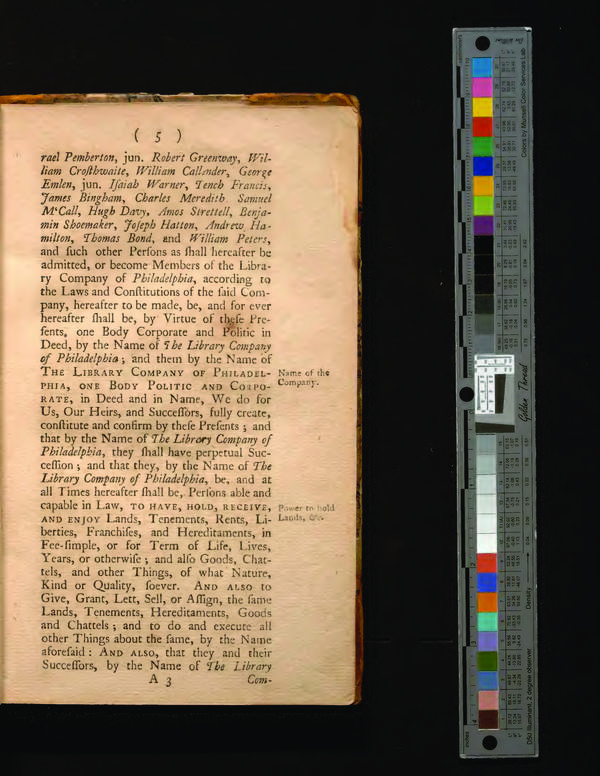 ( 5 )
rael Pemberton, jun. Robert Greenway, Wil-
liam Croſthwaite, William Callender, George
Emlen, jun. Iſaiah Warner, Tench Francis,
James Bingham, Charles Meredith. Samuel
M'Call, Hugh Davy, Amos Strettell, Benja-
min Shoemaker, Joſeph Hatton, Andrew Ha-
milton, Thomas Bond, and William Peters,
and ſuch other Perſons as ſhall hereafter be
admitted, or become Members of the Libra-
ry Company of Philadelphia, according to
the Laws and Conſtitutions of the ſaid Com-
pany, hereafter to be made, be, and for ever
hereafter ſhall be, by Virtue of theſe Pre-
ſents, one Body Corporate and Politic in
Deed, by the Name of The Library Company
of Philadelphia ; and them by the Name of
THE LIBRARY COMPANY OF PHILADEL-
PHIA, ONE BODY POLITIC AND CORPO-
RATE, in Deed and in Name, We do for
Us, Our Heirs, and Succeſſors, fully create,
conſtitute and confirm by theſe Preſents ; and
that by the Name of The Library Company of
Philadelphia, they ſhall have perpetual Suc-
ceſſion ; and that they, by the Name of The
Library Company of Philadelphia, be, and at
all Times hereafter ſhall be, Perſons able and
capable in Law, TO HAVE, HOLD, RECEIVE,
AND ENJOY Lands, Tenements, Rents, Li-
berties, Franchiſes, and Hereditaments, in
Fee-ſimple, or for Term of Life, Lives,
Years, or otherwiſe ; and alſo Goods, Chat-
tels, and other Things, of what Nature,
Kind or Quality, ſoever. AND ALSO to
Give, Grant, Lett, Sell, or Aſſign, the ſame
Lands, Tenements, Hereditaments, Goods
and Chattels ; and to do and execute all
other Things about the ſame, by the Name
aforeſaid : AND ALSO, that they and their
Succeſſors, by the Name of The Library
A 3 Com-
Name of the
Company.
Power to hold
Lands, &c.
Colors by Munsell Color Services Lab
Golden Thread
Density
D50 Illuminant, 2 degree observer